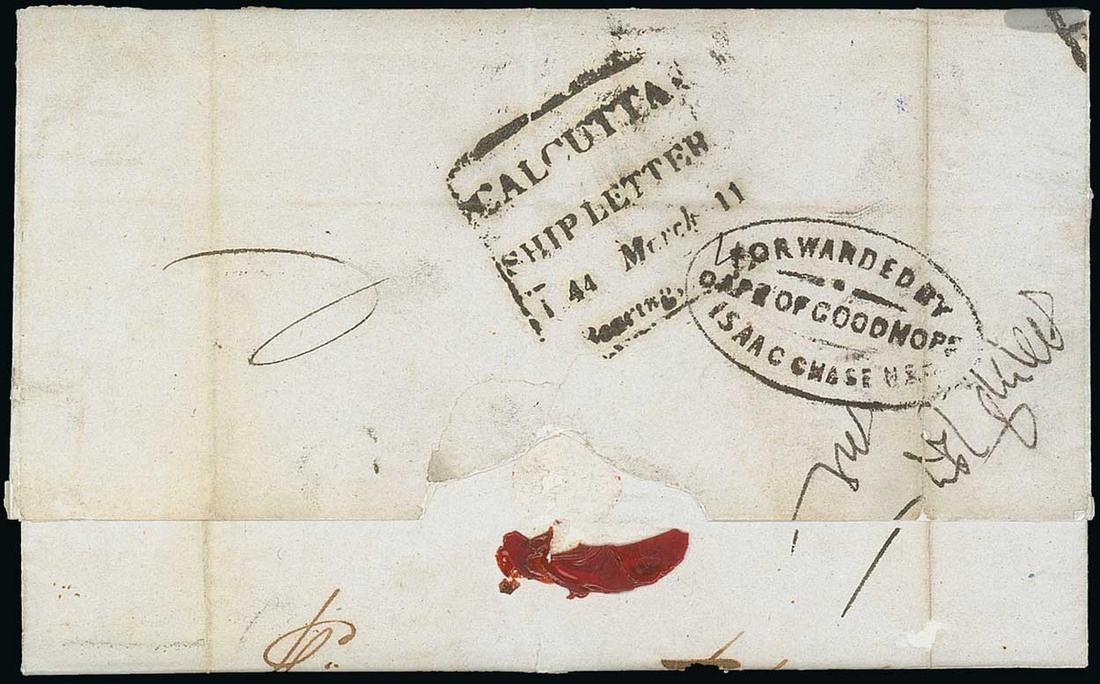 CALCUTTA
SHIP LETTER
44 March 11
Bearing,
FORWARDED BY
CAPE OF GOOD HOPE
ISAAC CHASE